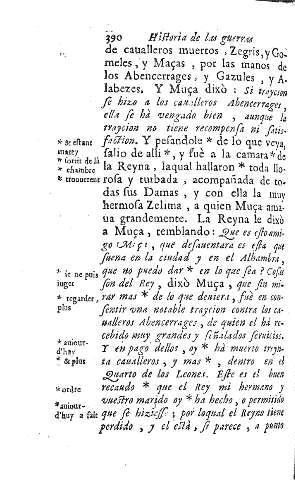 390 Historia de las guerras
de caualleros muertos, Zegris, y Go-
meles, y Maças, por las manos de
los Abencerrages, y Gazules, y A-
labezes. Y Muça dixò: Si traycion
se hizo a los caualleros Abencerrages,
ella se hà vengado bien, aunque la
traycion no tiene recompensa ni satis-
faction. Y pesandole * de lo que veya,
salio de alli *, y fuè a la camara * de
la Reyna, laqual hallaron * toda llo-
rosa y turbada, acompañada de to-
das sus Damas, y con ella la muy
hermosa Zelima, a quien Muça ami-
ua grandemente. La Reyna le dixò
a Muça, temblando: Que es esto ami-
go Muça, que desauentura es esta que
suena en la ciudad y en el Alhambra,
que no puedo dar * en lo que sea? Cosas
son del Rey, dixò Muça, que sin mi-
rar mas * de lo que deniera, fuè en con-
sentir vna notable traycion contra los ca-
ualleros Abencerrages, de quien el hà re-
cebido muy grandes y señalados seruicios.
Y en pago dellos, oy * hà muerto trayn-
ta caualleros, y mas *, dentro en el
Quarto de los Leones. Este es el buen
recaudo * que el Rey mi hermano y
vuestro marido oy * ha hecho, o permitido
que se hiziesse; por loqual el Reyno tiene
perdido, y el està, si parece, a punto
* se estant
* sortit de là
* chambre
* trouuerent
* ie ne puis
iuger
* regarder,
plus
* auiour-
d'huy
* & plus
* ordre
* auiour-
d'huy a fait